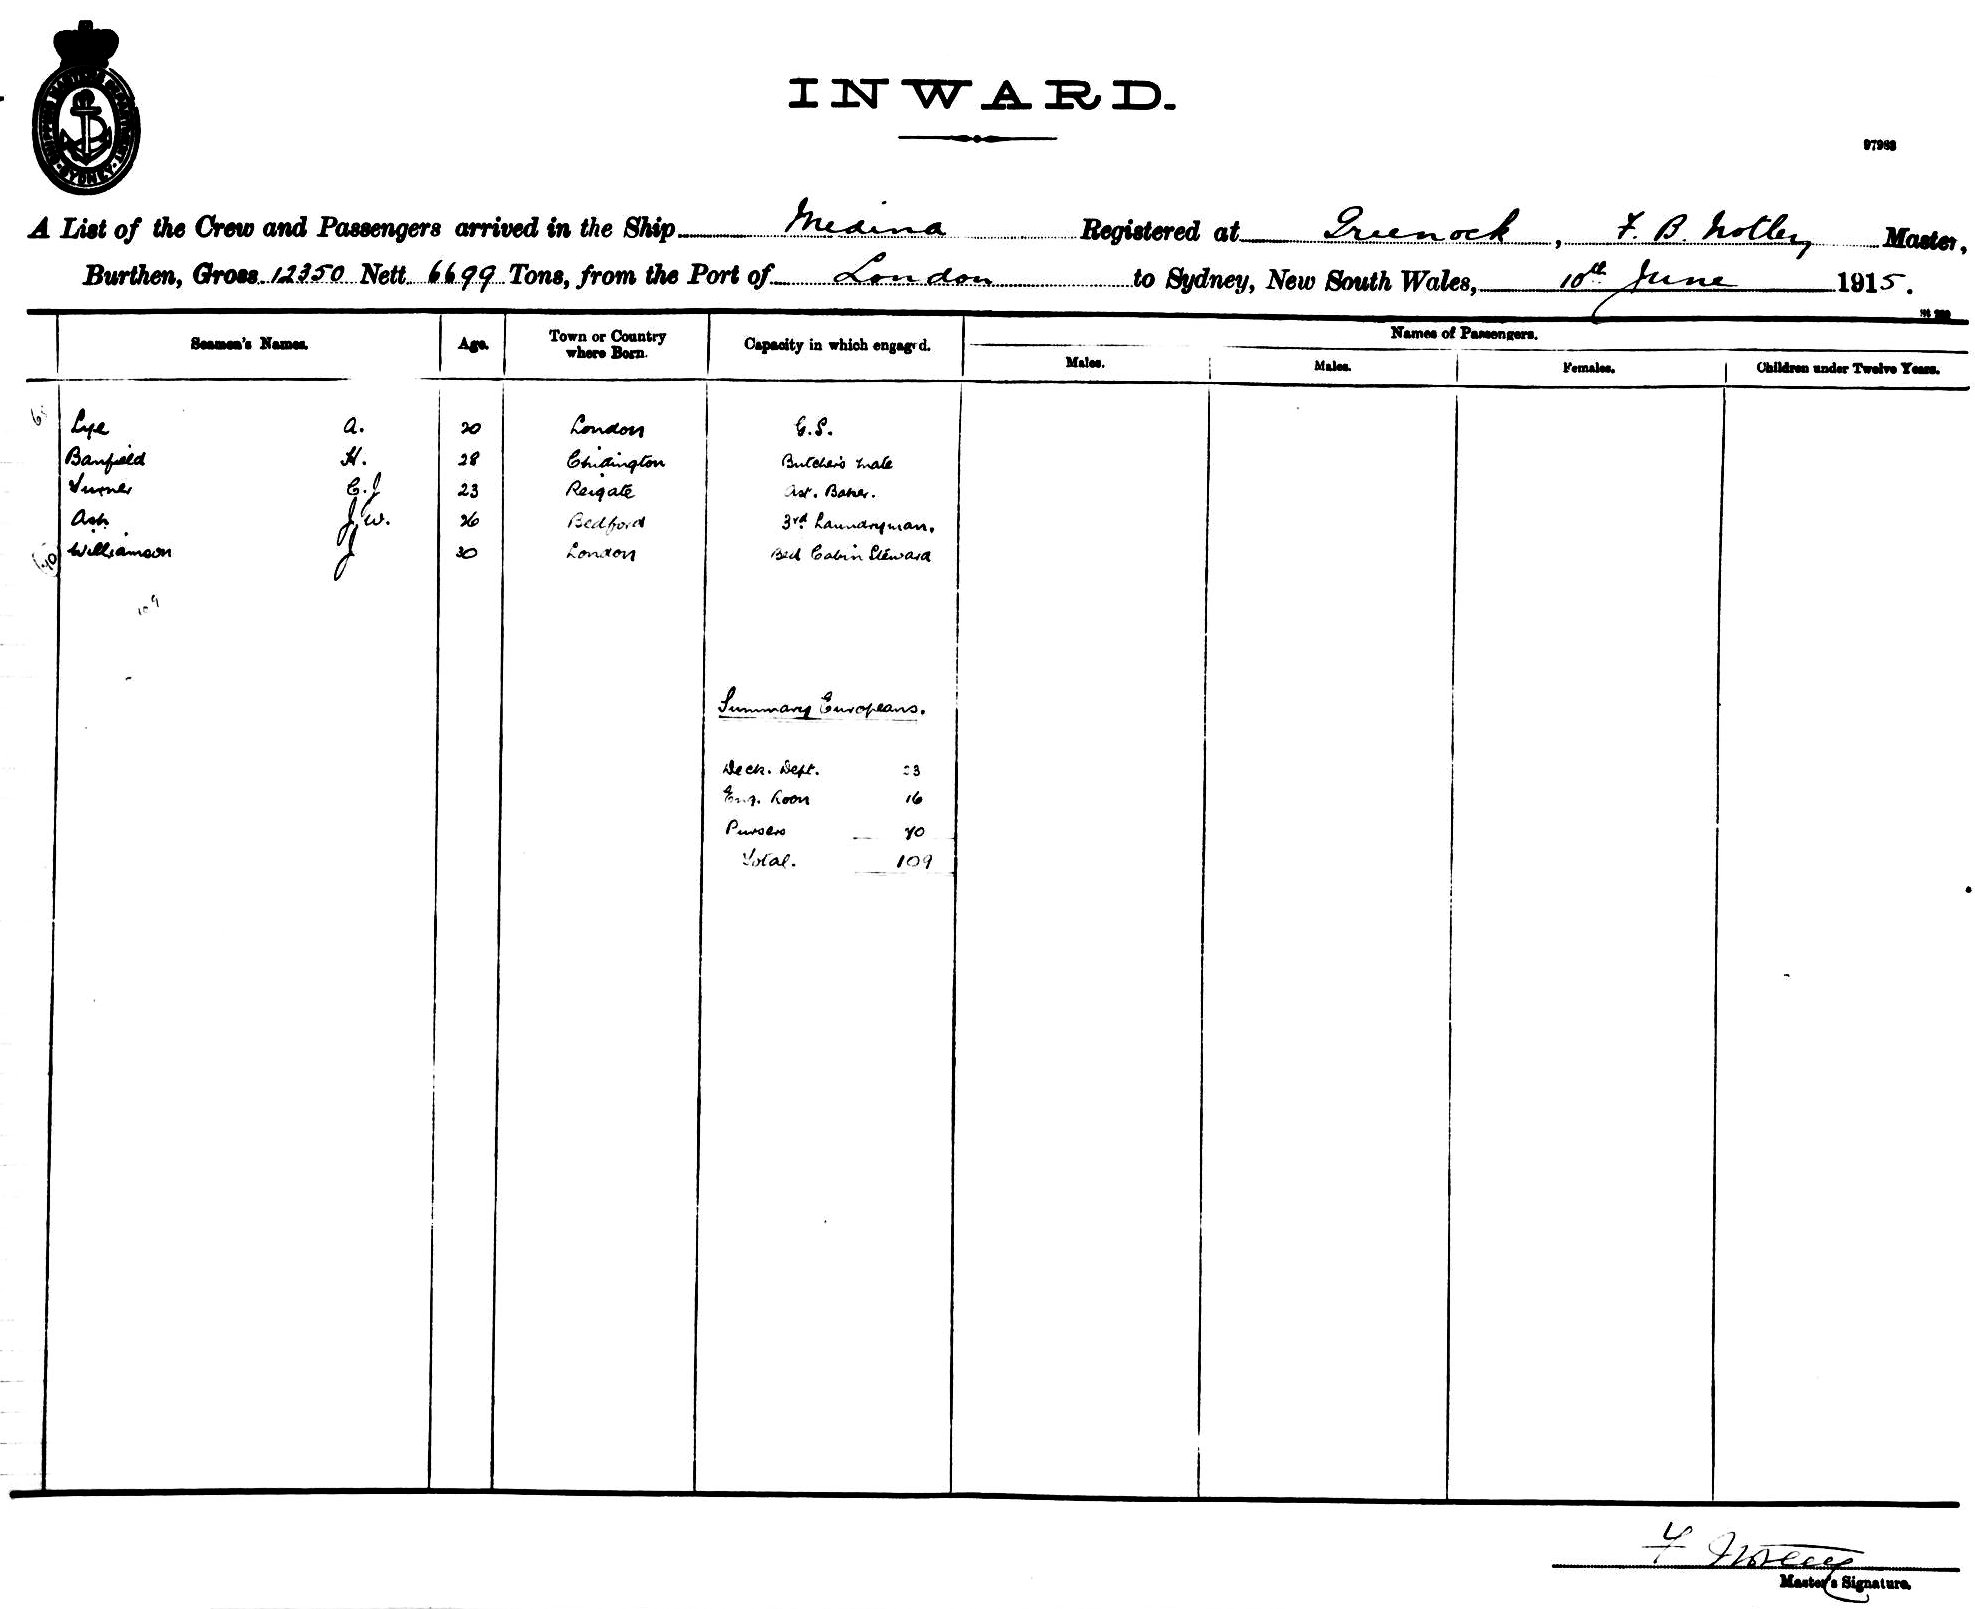 SHIPPING MASTER'S DEPARTMENT
SYDNEY
INWARD.
97983
A List of the Crew and Passengers arrived in the Ship Medina Registered at Greenock, F. B. Notley Master,
Burthen, Gross 12350 Nett 6699 Tons, from the Port of London to Sydney, New South Wales, 10th June 1915.
Seamen's Names. Age. Town or Country where Born. Capacity in which engaged. Names of Passengers.
Males. Males. Females. Children under Twelve Years.
Lye A. 20 London G.S.
Banfield H. 28 Butcher's Mate
Turner C.J 23 Reigate Ast. Baker.
Ash J.W. 26 Bedford 3rd Laundryman.
70 Williamson J 30 London Bed Cabin Steward
109
Summary Europeans.
Deck. Dept. 23
Eng. Room 16
Pursers 70
Total. 109
F Notley
Master's Signature.